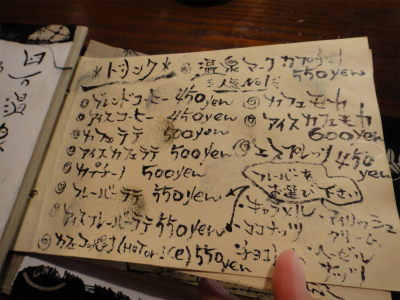 *ドリンク*
温泉マークカプチーノ
550yen
人気No1
ブレンドコーヒー 450yen
アイスコーヒー 450yen
カフェラテ 500yen
アイスカフェラテ 500yen
カプチーノ 500yen
フレーバーラテ 550yen
アイスフレーバーラテ 550yen
(HOT or ICE) 550yen
カフェモカ
アイスカフェモカ
600yen
エスプレッソ 450yen
フレーバーを
お選び下さい
・キャラメル
・ココナッツ
・チョコ
・アイリッシュ
クリーム
・ヘーゼル
ナッツ